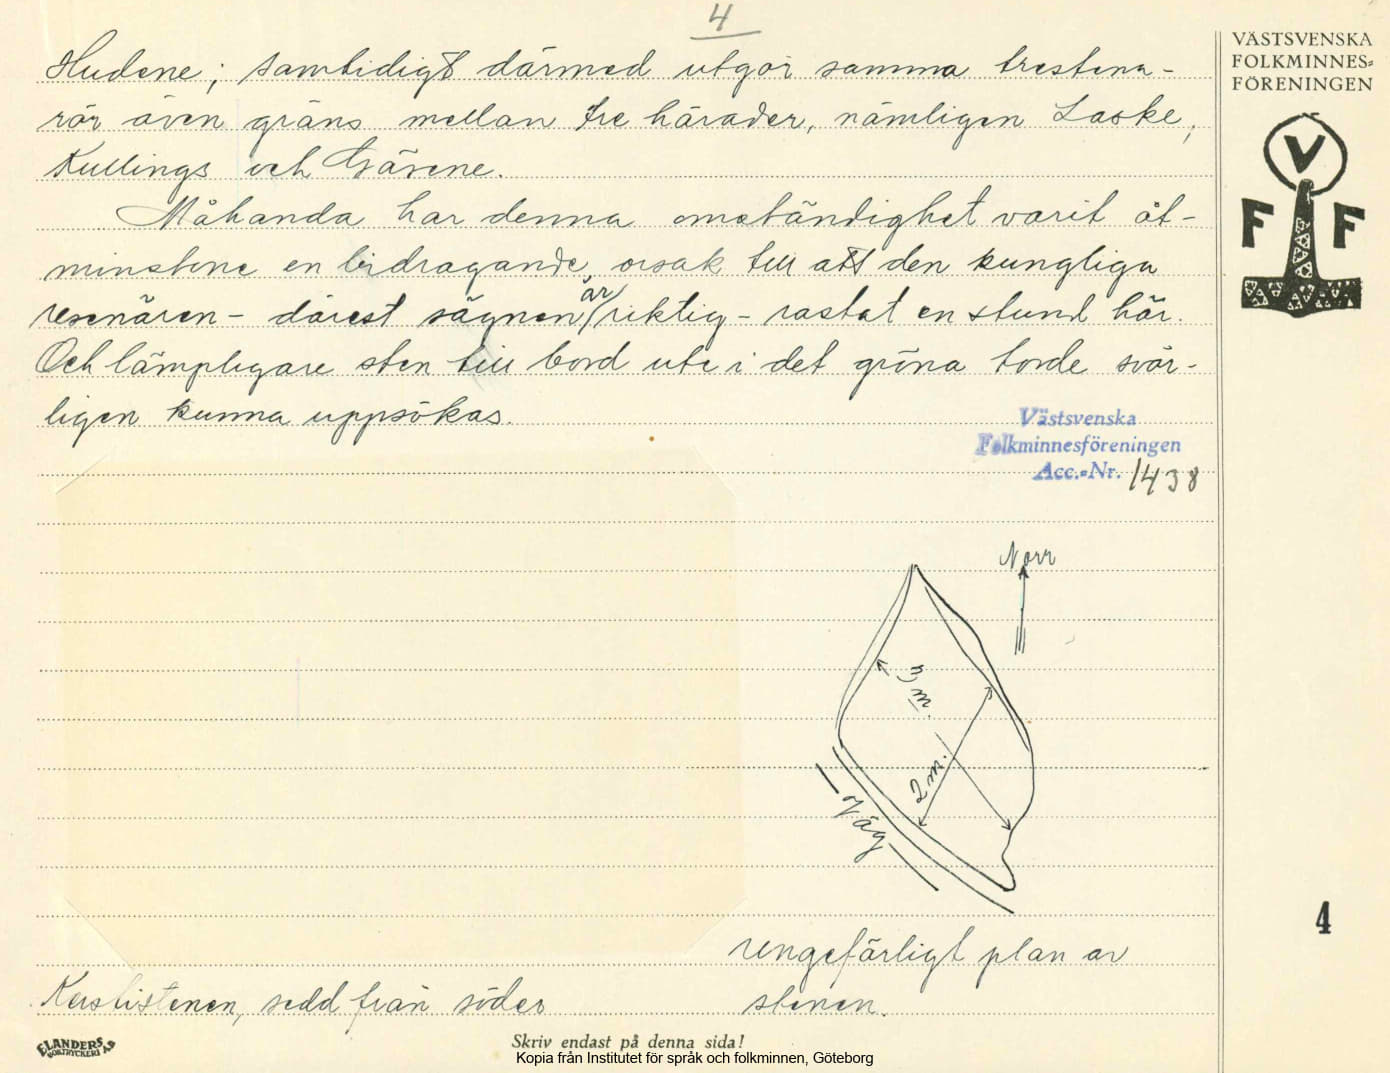 4
VÄSTSVENSKA
FOLKMINNES=
FÖRENINGEN
V
F F
Hudene; samtidigt därmed utgör samma trestena-
rör även gräns mellan tre härader, nämligen Laske,
Kullings och Gäsene.
Måhanda har denna omständighet varit åt-
minstone en bidragande orsak till att den kungliga
resenären - därest sägnen är riktig - rastat en stund här.
Och lämpligare sten till bord ute i det gröna torde svår-
ligen kunna uppsökas.
Västsvenska
Folkminnesföreningen
Acc.=Nr. 1438
Norr
m.
2 m.
Väg
4
ungefärligt plan av
stenen.
sedd från söder
ELANDERS
BOKTRYCKERI AB
Skriv endast på denna sida!
Kopia från Institutet för språk och folkminnen, Göteborg